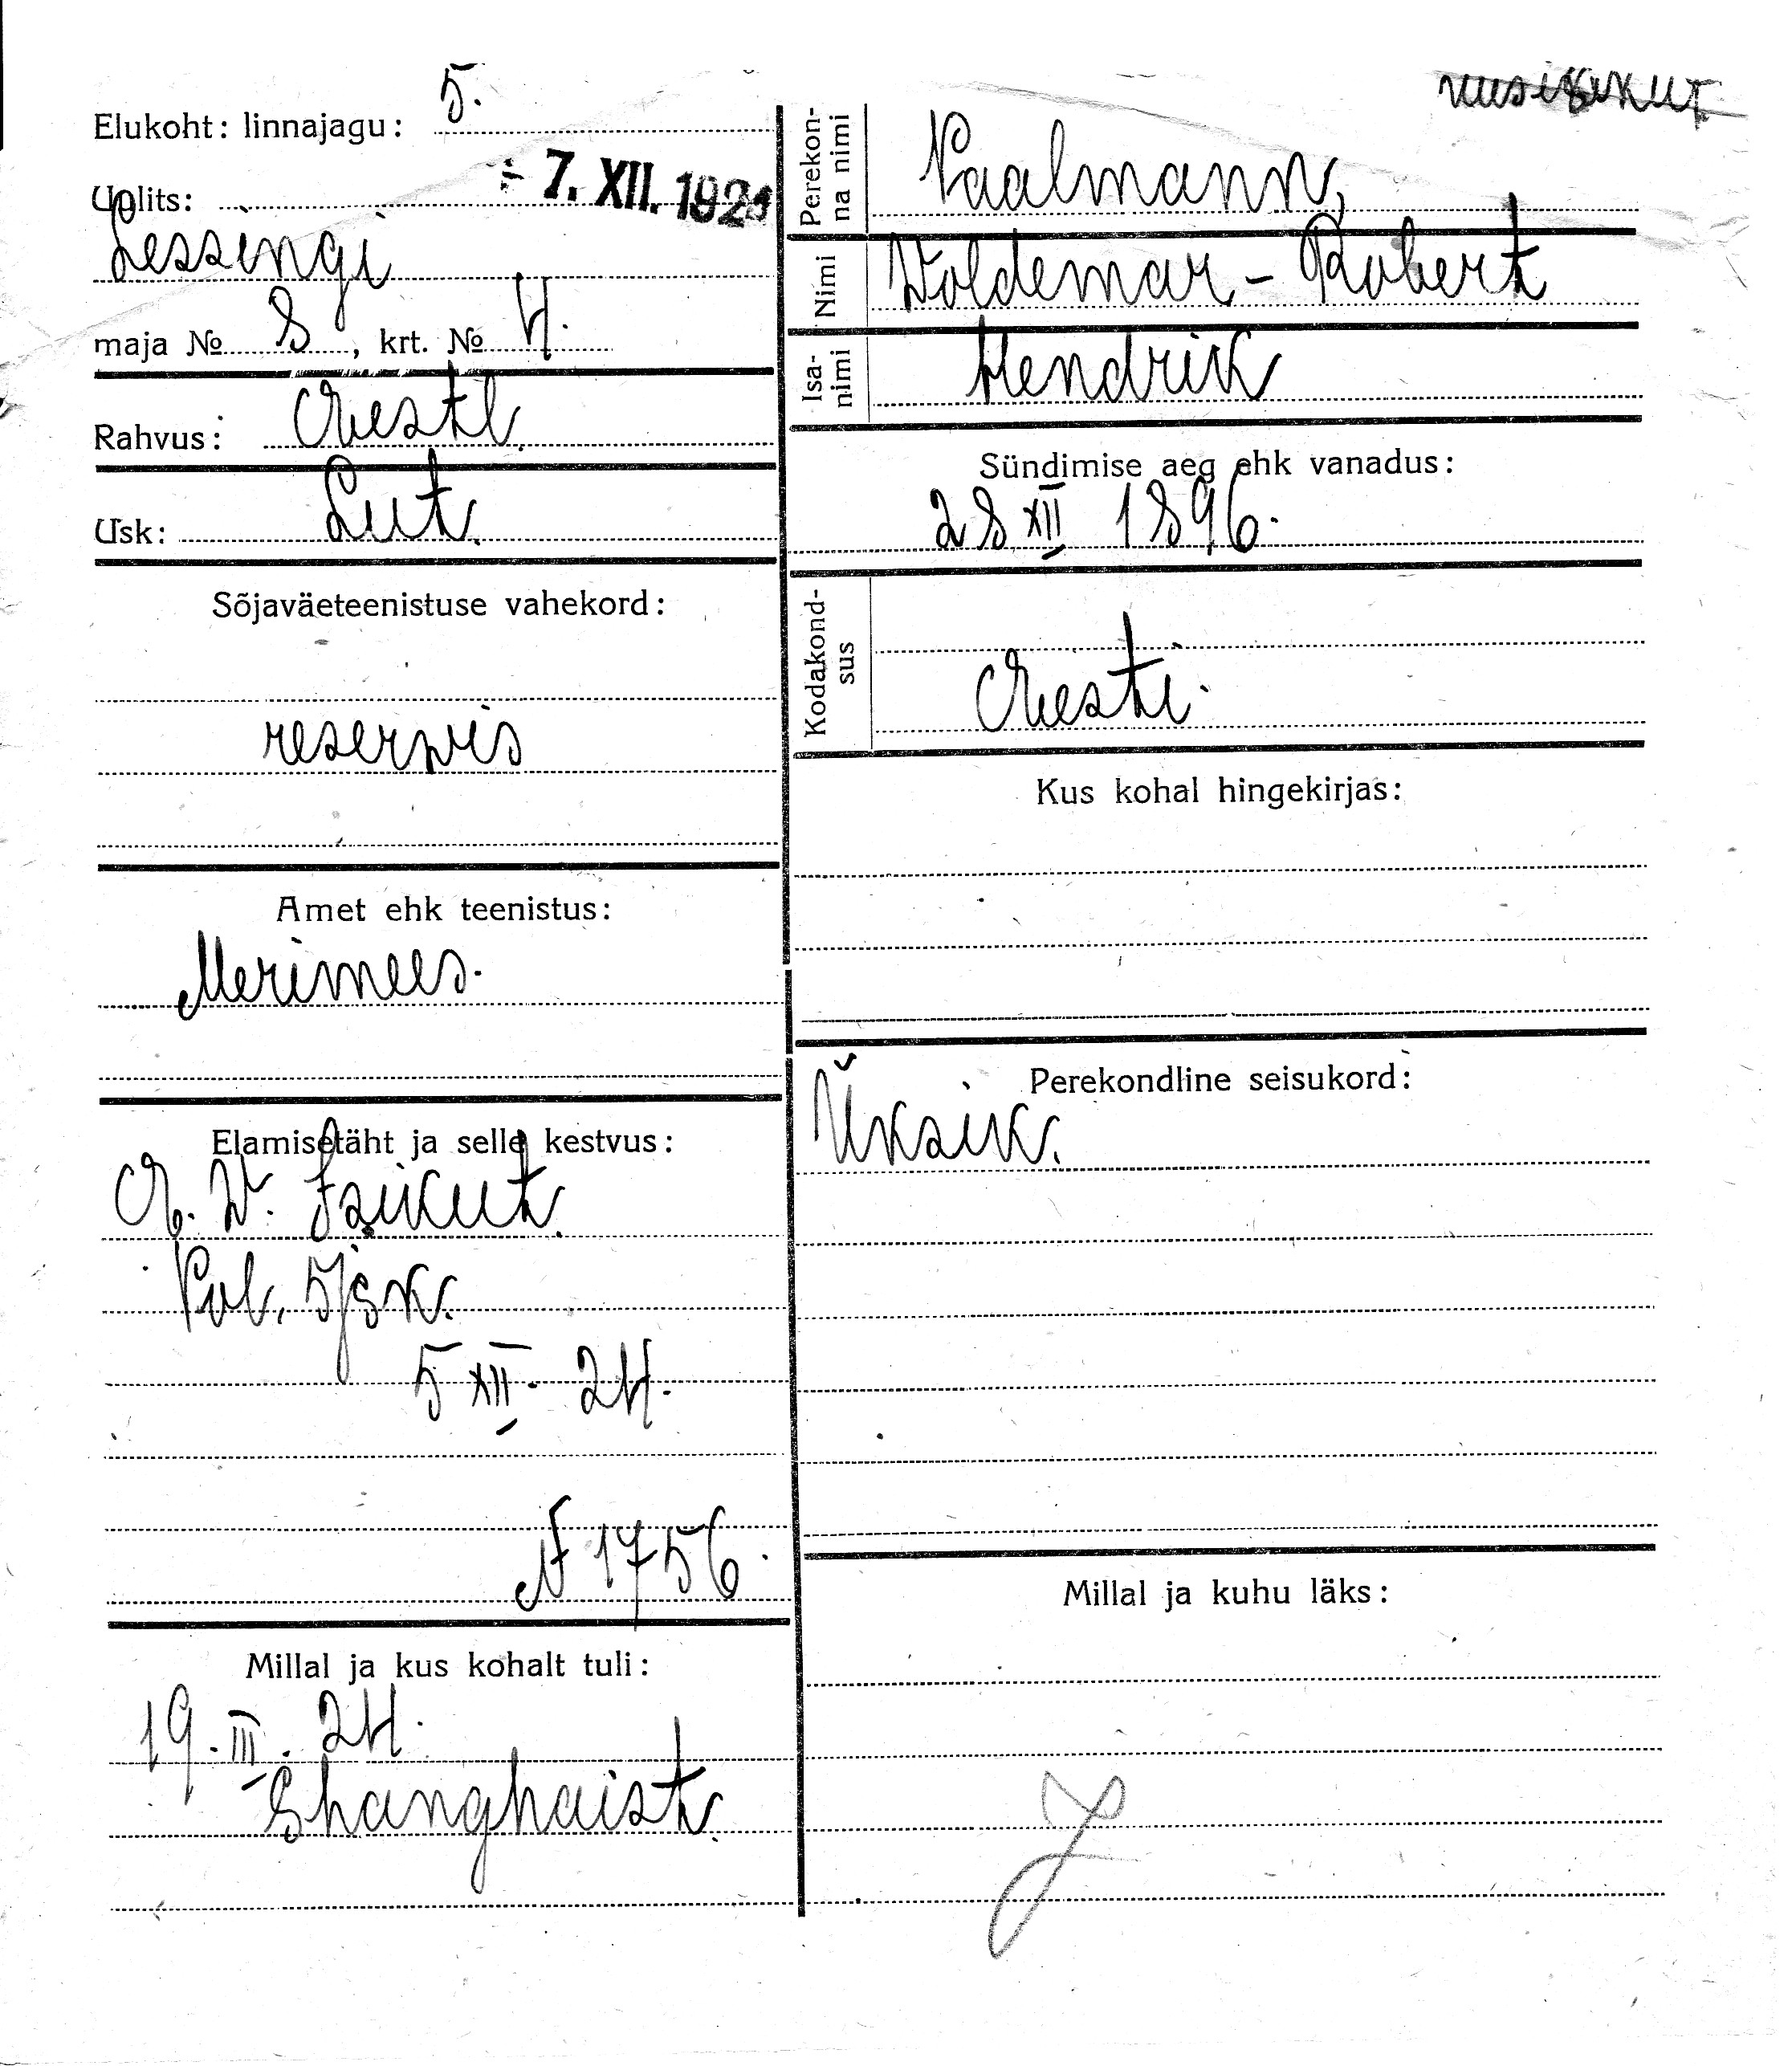 Elukoht: linnajagu: 5.
Uulits:
- 7. XII. 192
Lessingi
maja № 8, krt. № 4.
Rahvus: Eestl.
Usk: Lut.
Sõjaväeteenistuse vahekord:
reservis
Amet ehk teenistus:
Merimees.
Elamisetäht ja selle kestvus:
E. W. Isikut.
Pol. 5 jsk.
5 XII. 24.
№ 1756.
Millal ja kus kohalt tuli:
19. III. 24.
Shanghaist.
Perekon-
na nimi
Paalmann,
Nimi
Woldemar-Robert
Isa-
nimi
Hendrik
Sündimise aeg ehk vanadus:
28 XII 1896.
Kodakond-
sus
Eesti.
Kus kohal hingekirjas:
Perekondline seisukord:
Üksik.
Millal ja kuhu läks: